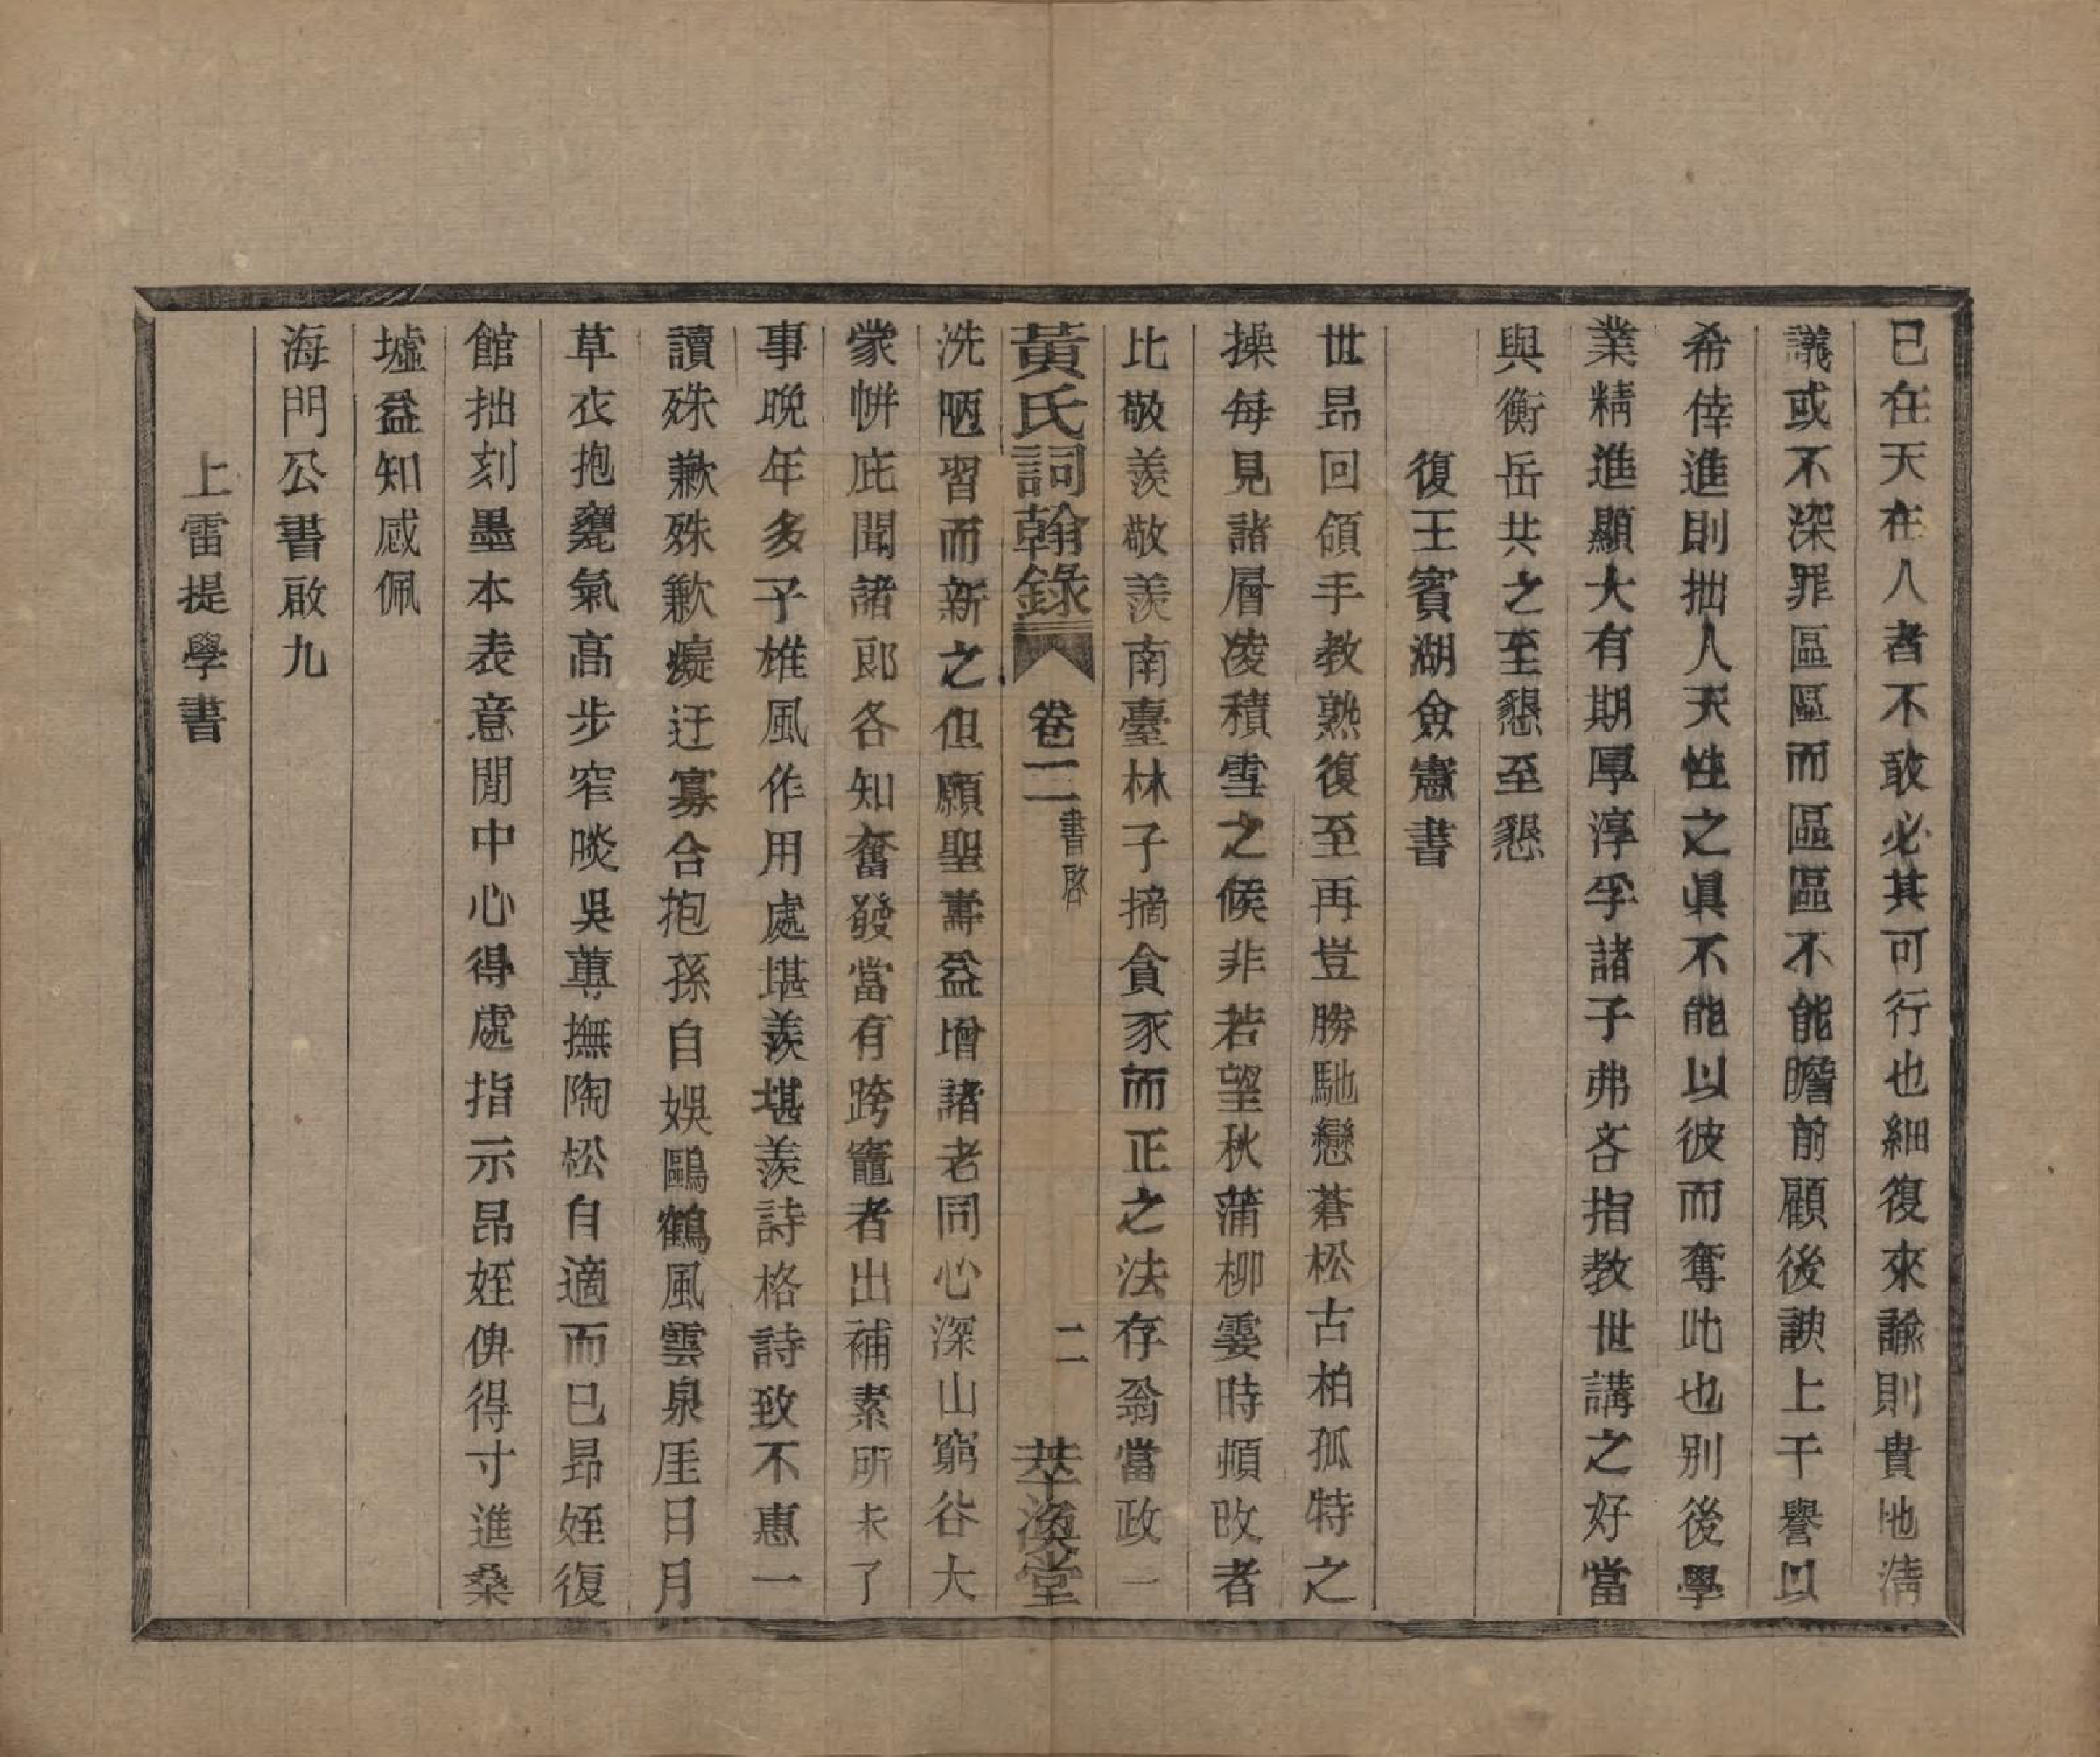 已在天在人者不敢必其可行也細復來諭則貴地淸
議或不深罪區區而區區不能瞻前顧後諛上干譽以
希倖進則拙人天性之眞不能以彼而奪此也別後學
業精進顯大有期厚淳孚諸子弗吝指敎世講之好當
與衡岳共之至懇至懇
復王賓湖僉憲書
世昻回領手敎熟復至再豈勝馳戀蒼松古柏孤特之
操每見諸層凌積雪之候非若望秋蒲柳霎時頓改者
比敬羨敬羨南臺林子摘貪豕而正之法存翁當政一
黃氏詞翰錄 卷二 書啓 二 萃渙堂
洗陋習而新之但願聖壽益增諸老同心深山窮谷大
蒙帡庇聞諸郞各知奮發當有跨竈者出補素所未了
事晩年多子雄風作用處堪羨堪羨詩格詩致不惠一
讀殊歉殊歉癡迂寡合抱孫自娛鷗鶴風雲泉厓日月
草衣抱甕氣高步窄啖吳蓴撫陶松自適而已昻姪復
館拙刻墨本表意閒中心得處指示昂姪俾得寸進桑
墟益知感佩
海門公書啟九
上雷提學書